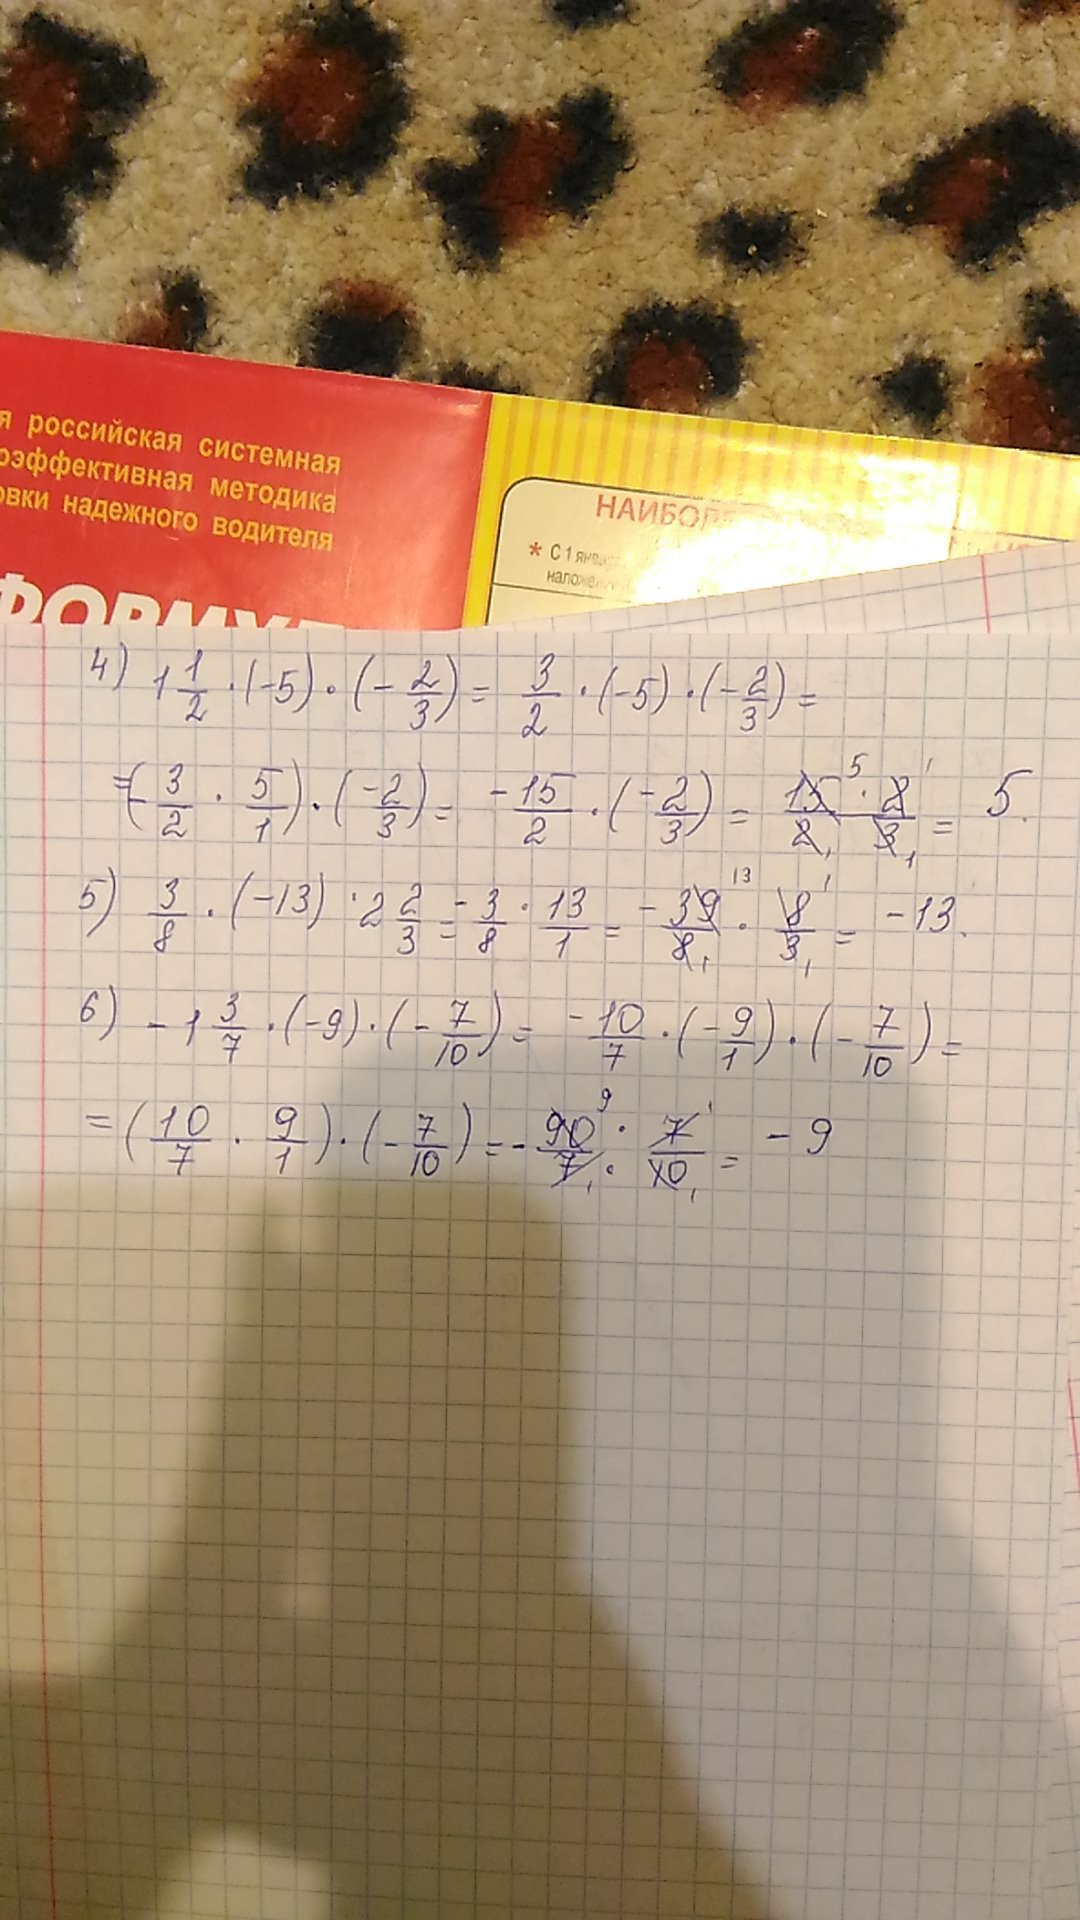 я российская системная
оэффективная методика
овки надежного водителя
ФОРМУЛ
НАИБОЛ
* С 1 янва
наложен
4) 1 1/2 · (-5) · (- 2/3) = 3/2 · (-5) · (- 2/3) =
= (- 3/2 · 5/1) · (-2/3) = -15/2 · (-2/3) = 15 5 · 2 1/2 1 3 1 = 5.
5) 3/8 · (-13) · 2 2/3 = -3/8 · 13/1 = -39 13/8 1 · 8 1/3 1 = -13.
6) -1 3/7 · (-9) · (- 7/10) = -10/7 · (- 9/1) · (- 7/10) =
= (10/7 · 9/1) · (- 7/10) = - 90 9/7 1 · 7 1/10 1 = -9